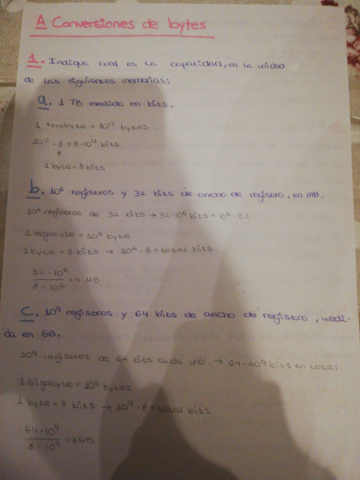 A Conversiones de bytes
1. Indique cual es la capacidad, en la unidad
de las siguientes memorias:
a. 1 TB medido en bits.
1 terabyte = 10¹² bytes
10¹² · 8 = 8·10¹² bits
1 byte = 8 bits
b. 10⁶ registros y 32 bits de ancho de registro, en MB.
10⁶ registros de 32 bits → 32·10⁶ bits = 10⁶·32
1 megabyte = 10⁶ byte
1 byte = 8 bits → 10⁶ · 8 = total bits
32·10⁶
8·10⁶ = 4 MB
c. 10⁹ registros y 64 bits de ancho de registro, medi-
da en GB.
10⁹ registros de 64 bits cada uno → 64·10⁹ bits en total
1 Gigabyte = 10⁹ bytes
1 byte = 8 bits → 10⁹ · 8 = total bits
64·10⁹
8·10⁹